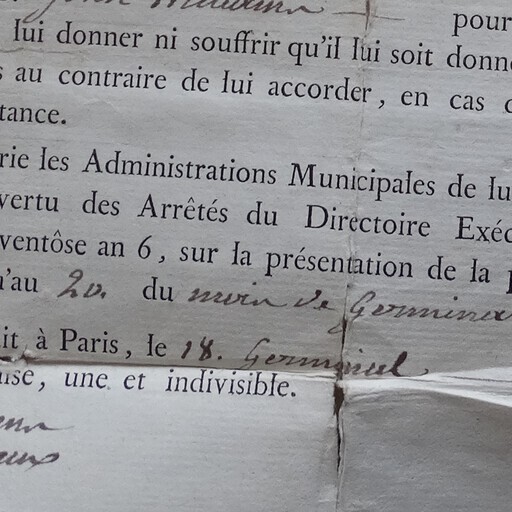 pour
lui donner ni souffrir qu'il lui soit donn
s au contraire de lui accorder, en cas d
tance.
rie les Administrations Municipales de lu
vertu des Arrêtés du Directoire Exéc
ventôse an 6, sur la présentation de la p
u'au 20. du mois de Germina
it à Paris, le 18. Germinal
ise, une et indivisible.